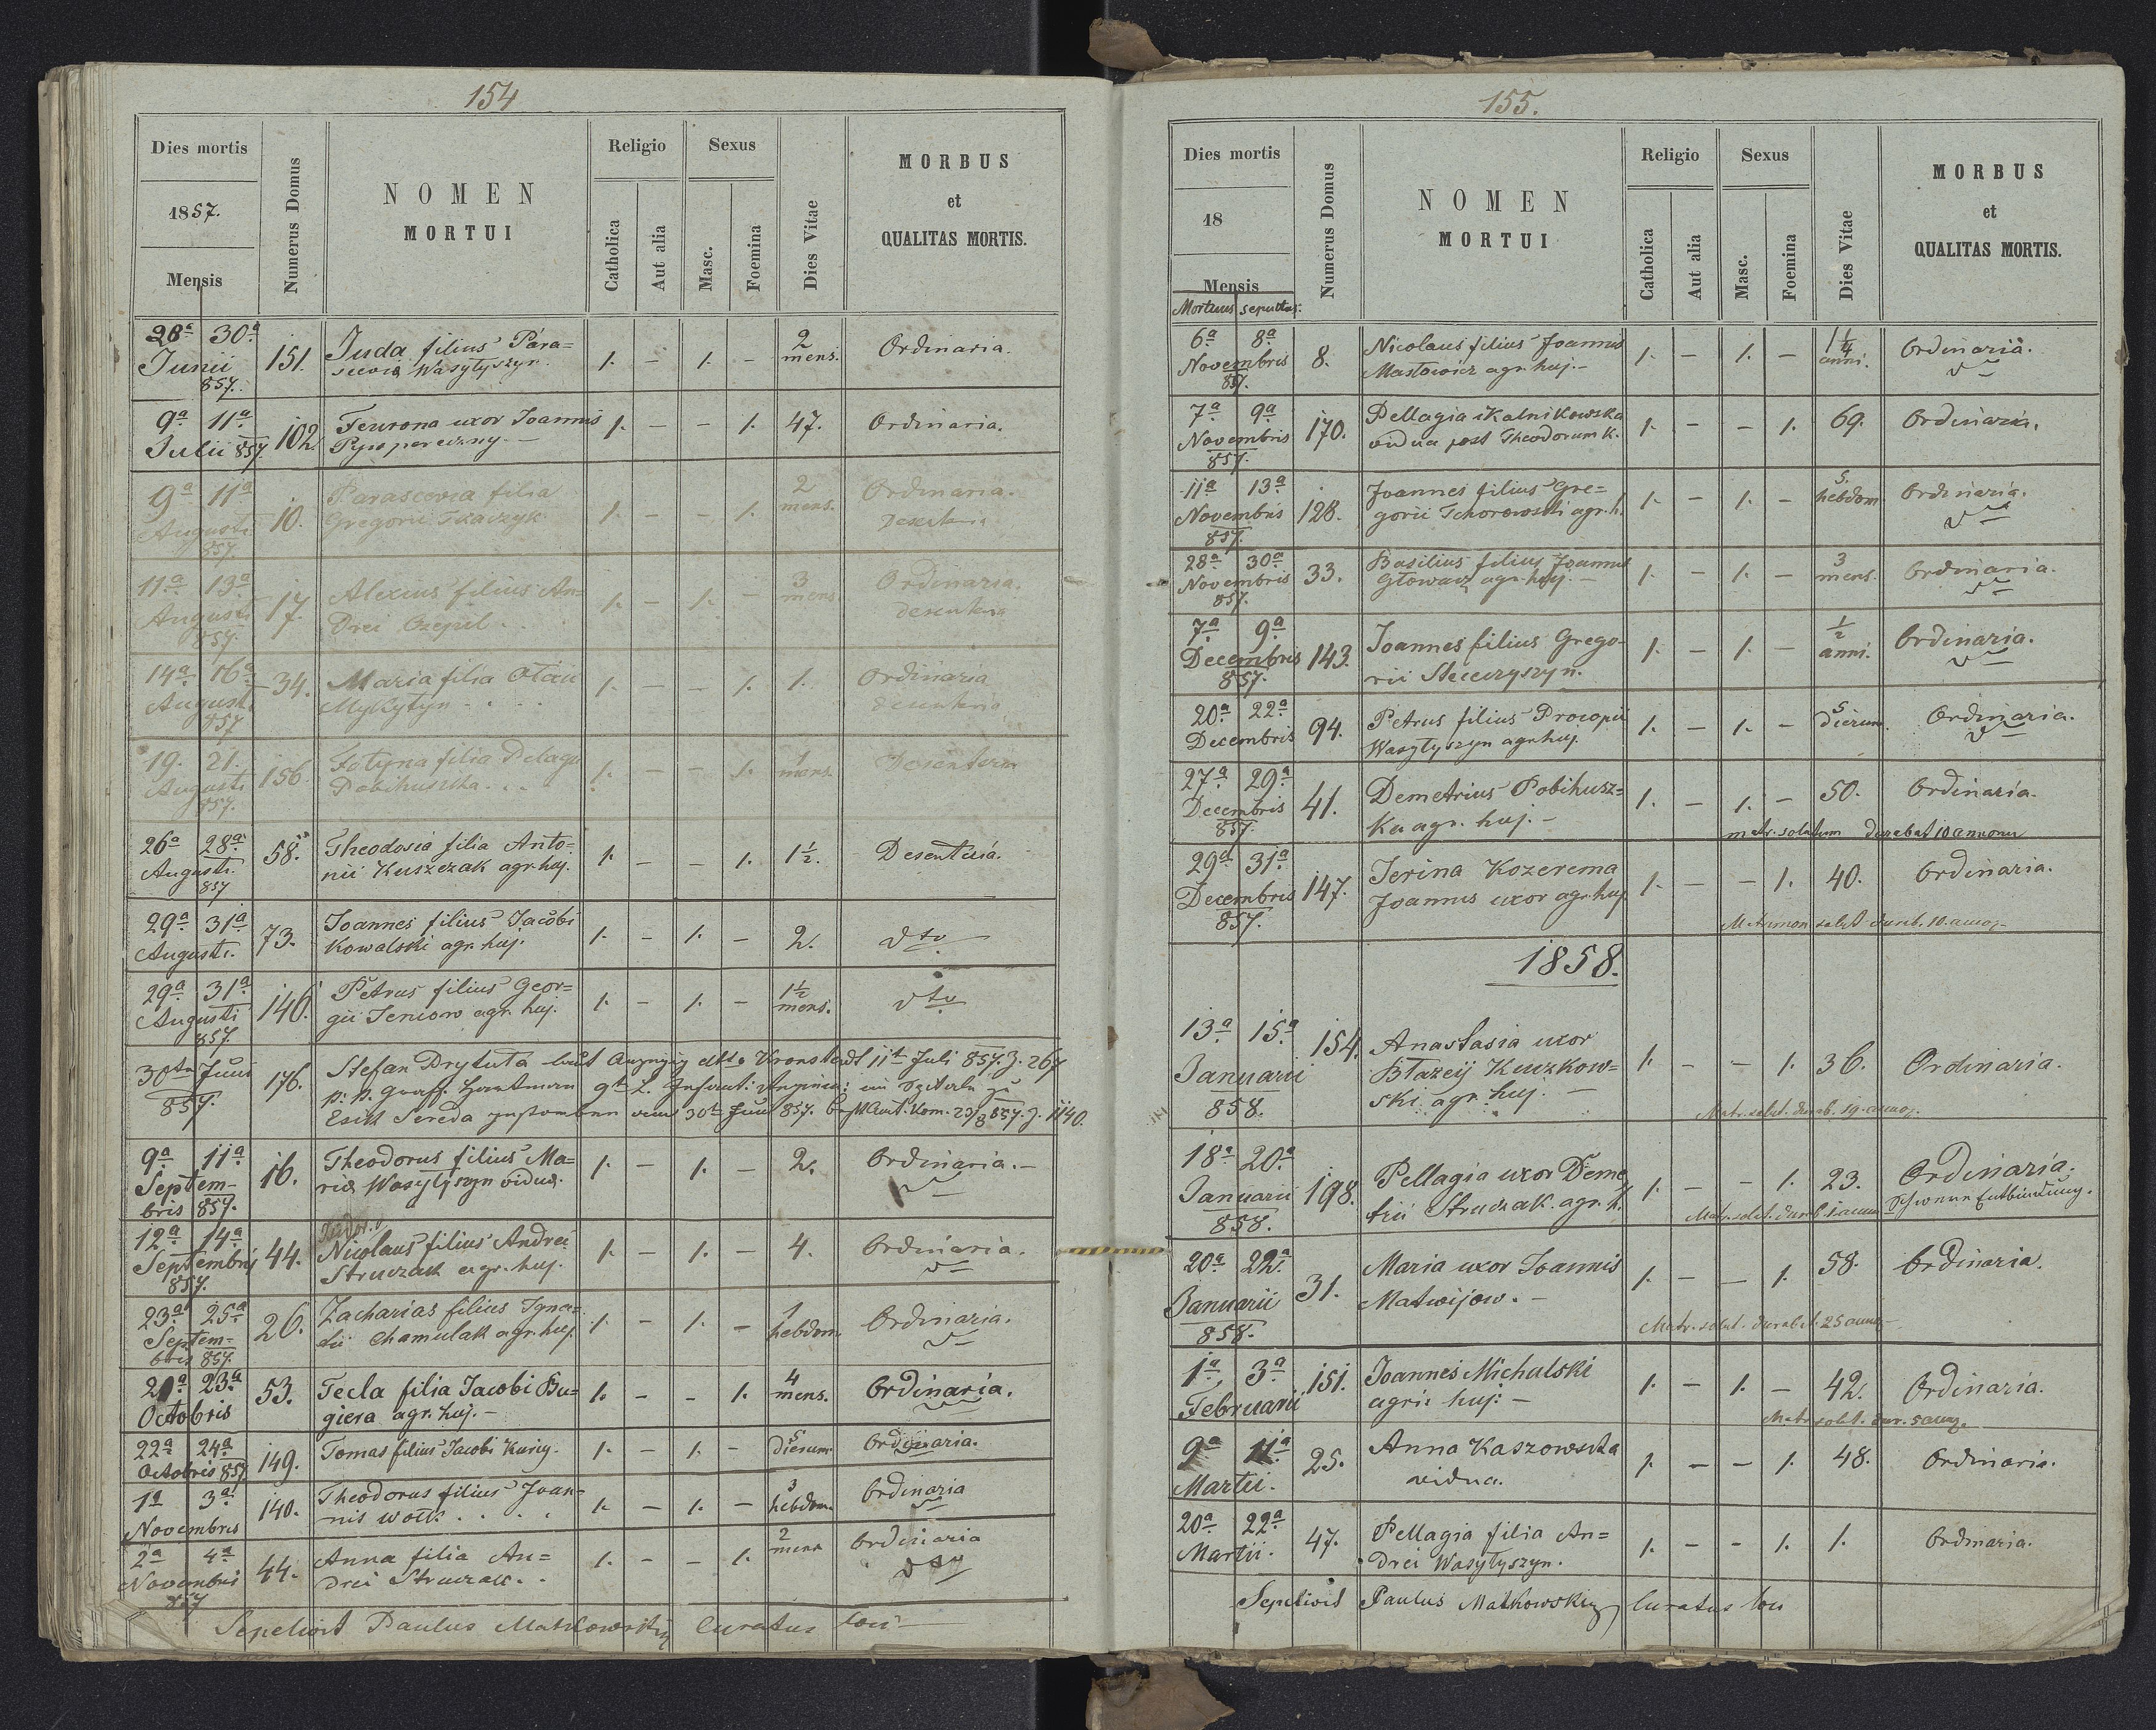 154
Dies mortis
1857.
Mensis
Numerus Domus
NOMEN
MORTUI
Religio
Catholica
Aut alia
Sexus
Masc.
Foemina
Dies Vitae
MORBUS
et
QUALITAS MORTIS.
28ª 30ª Junii 857. 151. Juda filius Para=
scevia Wasyłyszyn 1. - 1. - 2 mens. Ordinaria.
9ª 11ª Julii 857 102. Fewrona uxor Joannis 1. - - 1. 47. Ordinaria.
9ª 11ª Augusti 857. 10. Parascevia filia
Gregorii Tkaczyk 1. - - 1. 2 mens. Ordinaria.
11ª 13ª Augusti 857. 17. Alexius filius An=
drei Czepil 1. - 1. - 3 mens. Ordinaria.
14ª 16ª Augusti 857 34. Maria filia
Mykytyn 1. - - 1. 1. Ordinaria
19. 21. Augusti 857. 156. Fotyna filia Pelagii
Pobihuszka 1. - - 1. 1 mens. Desenteria
26ª 28ª Augusti. 857 58. Theodosia filia Anto=
nii Kuszczak agr. huj. 1. - - 1. 1½. Desenteria.
29ª 31ª Augusti. 73. Joannes filius Jacobi
Kowalski agr. huj. 1. - 1. - 2. dto
29ª 31ª Augusti 857. 146. Petrus filius Geor=
gii Seniow agr. huj. 1. - 1. - 1½ mens. dto
30ten Juni 857. 176. Stefan Drytuta laut Anzeige dtto Kronstadt 11t Juli 857. Z. 267
30t Juni 857.
9ª 11ª Septem-
bris 857. 16. Theodorus filius Ma=
ria Wasyłyszyn vidua. 1. - 1. - 2. Ordinaria.-
12ª 14ª Septembris 857. 44. Nicolaus filius Andrei
Struczak agr. huj. 1. - 1. - 4. Ordinaria.
23ª 25ª Septem-
bris 857. 26. Zacharias filius Igna=
tii Chamulak agr. huj. 1. - 1. - 1 hebdom. Ordinaria.
23ª Octobris 53. Tecla filia Jacobi Bu=
giera agr. huj.- 1. - - 1. 4 mens. Ordinaria.
22ª 24ª Octobris 857 149. Tomas filius Jacobi 1. - 1. - 5 dierum Ordinaria.
1ª 3ª Novembris 140. Theodorus filius Joan=
nis Wołk 1. - 1. - 3 hebdom. Ordinaria
2ª 4ª Novembris 857 44. Anna filia An=
drei Struczak 1. - - 1. 2 mens Ordinaria
Sepelivit Paulus Matkowski Curatus loci
155.
Dies mortis
18
Mensis
Mortuus sepultus.
Numerus Domus
NOMEN
MORTUI
Religio
Catholica
Aut alia
Sexus
Masc.
Foemina
Dies Vitae
MORBUS
et
QUALITAS MORTIS.
6ª 8ª Novembris 857. 8. Nicolaus filius Joannis
Masłowicz agr. huj.- 1. - 1. - 1¼ anni. Ordinaria.
7ª 9ª Novembris 857. 170. Pellagia Kalnikowska
vidua post Theodorum K. 1. - - 1. 69. Ordinaria.
11ª 13ª Novembris 857. 128. Joannes filius Gre=
gorii Tchorowski agr. h. 1. - 1. - 5. hebdom. Ordinaria.
28ª 30ª Novembris 857. 33. Basilius filius Joannis
Głowacz agr. huj.- 1. - 1. - 3 mens. Ordinaria.
7ª 9ª Decembris 857. 143. Joannes filius Grego-
rii Steczyszyn. 1. - 1. - ½ anni. Ordinaria.
20ª 22ª Decembris 94. Petrus filius Procopii
Wasyłyszyn agr. huj. 1. - 1. - 5 dierum Ordinaria.
27ª 29ª Decembris 857. 41. Demetrius Pobihusz=
ka agr. huj.- 1. - 1. - 50. Ordinaria.
matr. solutum durabat 10 annorum
29ª 31ª Decembris 857. 147. Jerina Kozerema
Joannis uxor agr. huj. 1. - - 1. 40. Ordinaria.
Matrimon solut durab. 10.
1858.
13ª 15ª Januarii 858. 154. Anastasia uxor
Błazeij Kuczkow=
ski agr. huj.- 1. - - 1. 36. Ordinaria.
Matr. solut. durab. 19.
18ª 20ª Januarii 858. 198. Pellagia uxor Deme
trii Struczak. agr. h. 1. - - 1. 23. Ordinaria.
Schwere Entbindung.
Matr. solut. durab. 1
20ª 22ª Januarii 858. 31. Maria uxor Joannis
Matwijow.- 1. - - 1. 58. Ordinaria.
Matr. solut. durabat. 25
1ª 3ª Februarii 151. Joannes Michalski
agric huj.- 1. - 1. - 42. Ordinaria.
Matr. solut. dur. 5
9ª 11ª Martii. 25. Anna Kaszowska
vidua. 1. - - 1. 48. Ordinaria.
20ª 22ª Martii. 47. Pellagia filia An=
drei Wasyłyszyn. 1. - - 1. 1. Ordinaria.
Sepelivit Paulus Matkowski Curatus loci